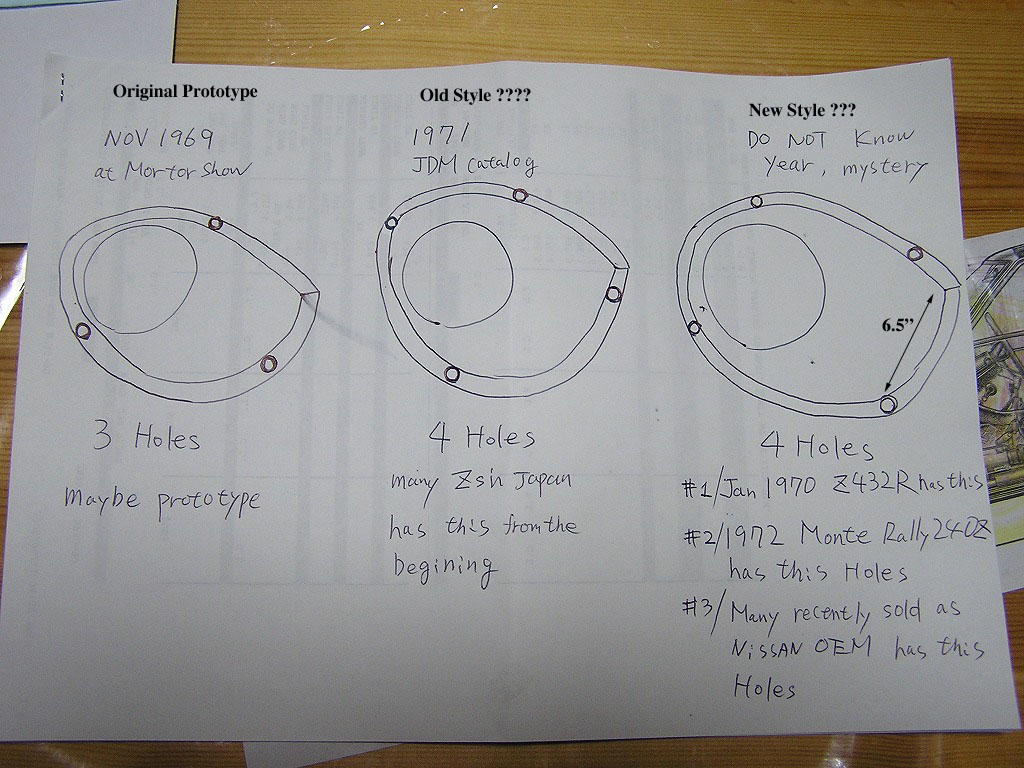 Original Prototype
NOV 1969
at Mortor Show
3 Holes
maybe prototype
Old Style ????
1971
JDM Catalog
4 Holes
many Zs in Japan
has this from the
begining
New Style ???
DO NOT Know
Year, mystery
6.5”
4 Holes
#1/Jan 1970 Z432R has this
#2/1972 Monte Rally 240Z
has this Holes
#3/Many recently sold as
NiSSAN OEM has this
Holes